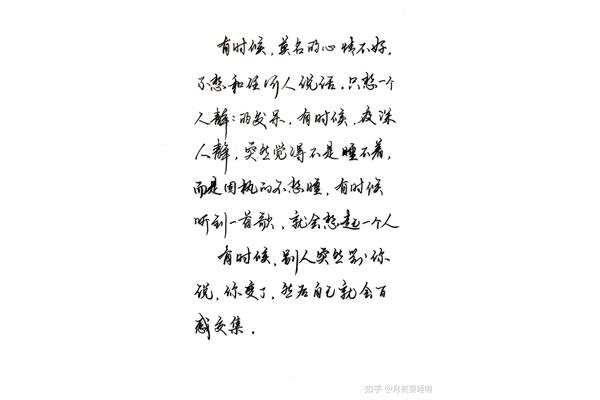 有时候，莫名的心情不好，
不想和任何人说话，只想一个
人静：的发呆，有时候，夜深
人静，突然觉得不是睡不着，
而是固执的不想睡，有时候
听到一首歌，就会想起一个人
有时候，别人突然对你
说，你变了，然后自己就会百
感交集。
知乎 @月亮要睡啦